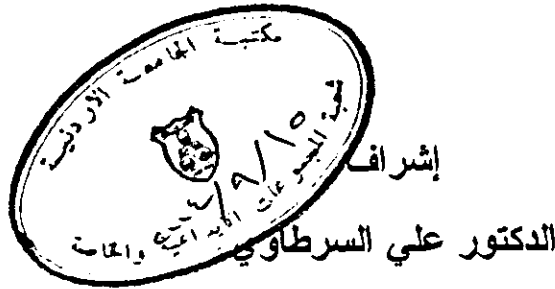 مكتبة الجامعة الأردنية
شعبة المجموعات الإبداعية والخاصة
إشراف
الدكتور علي السرطاوي